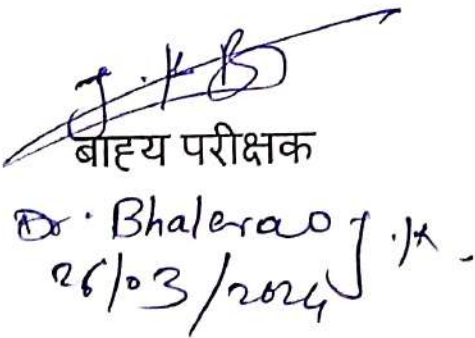 J.K B
बाह्य परीक्षक
Dr. Bhalerao J.K.
26/03/2024